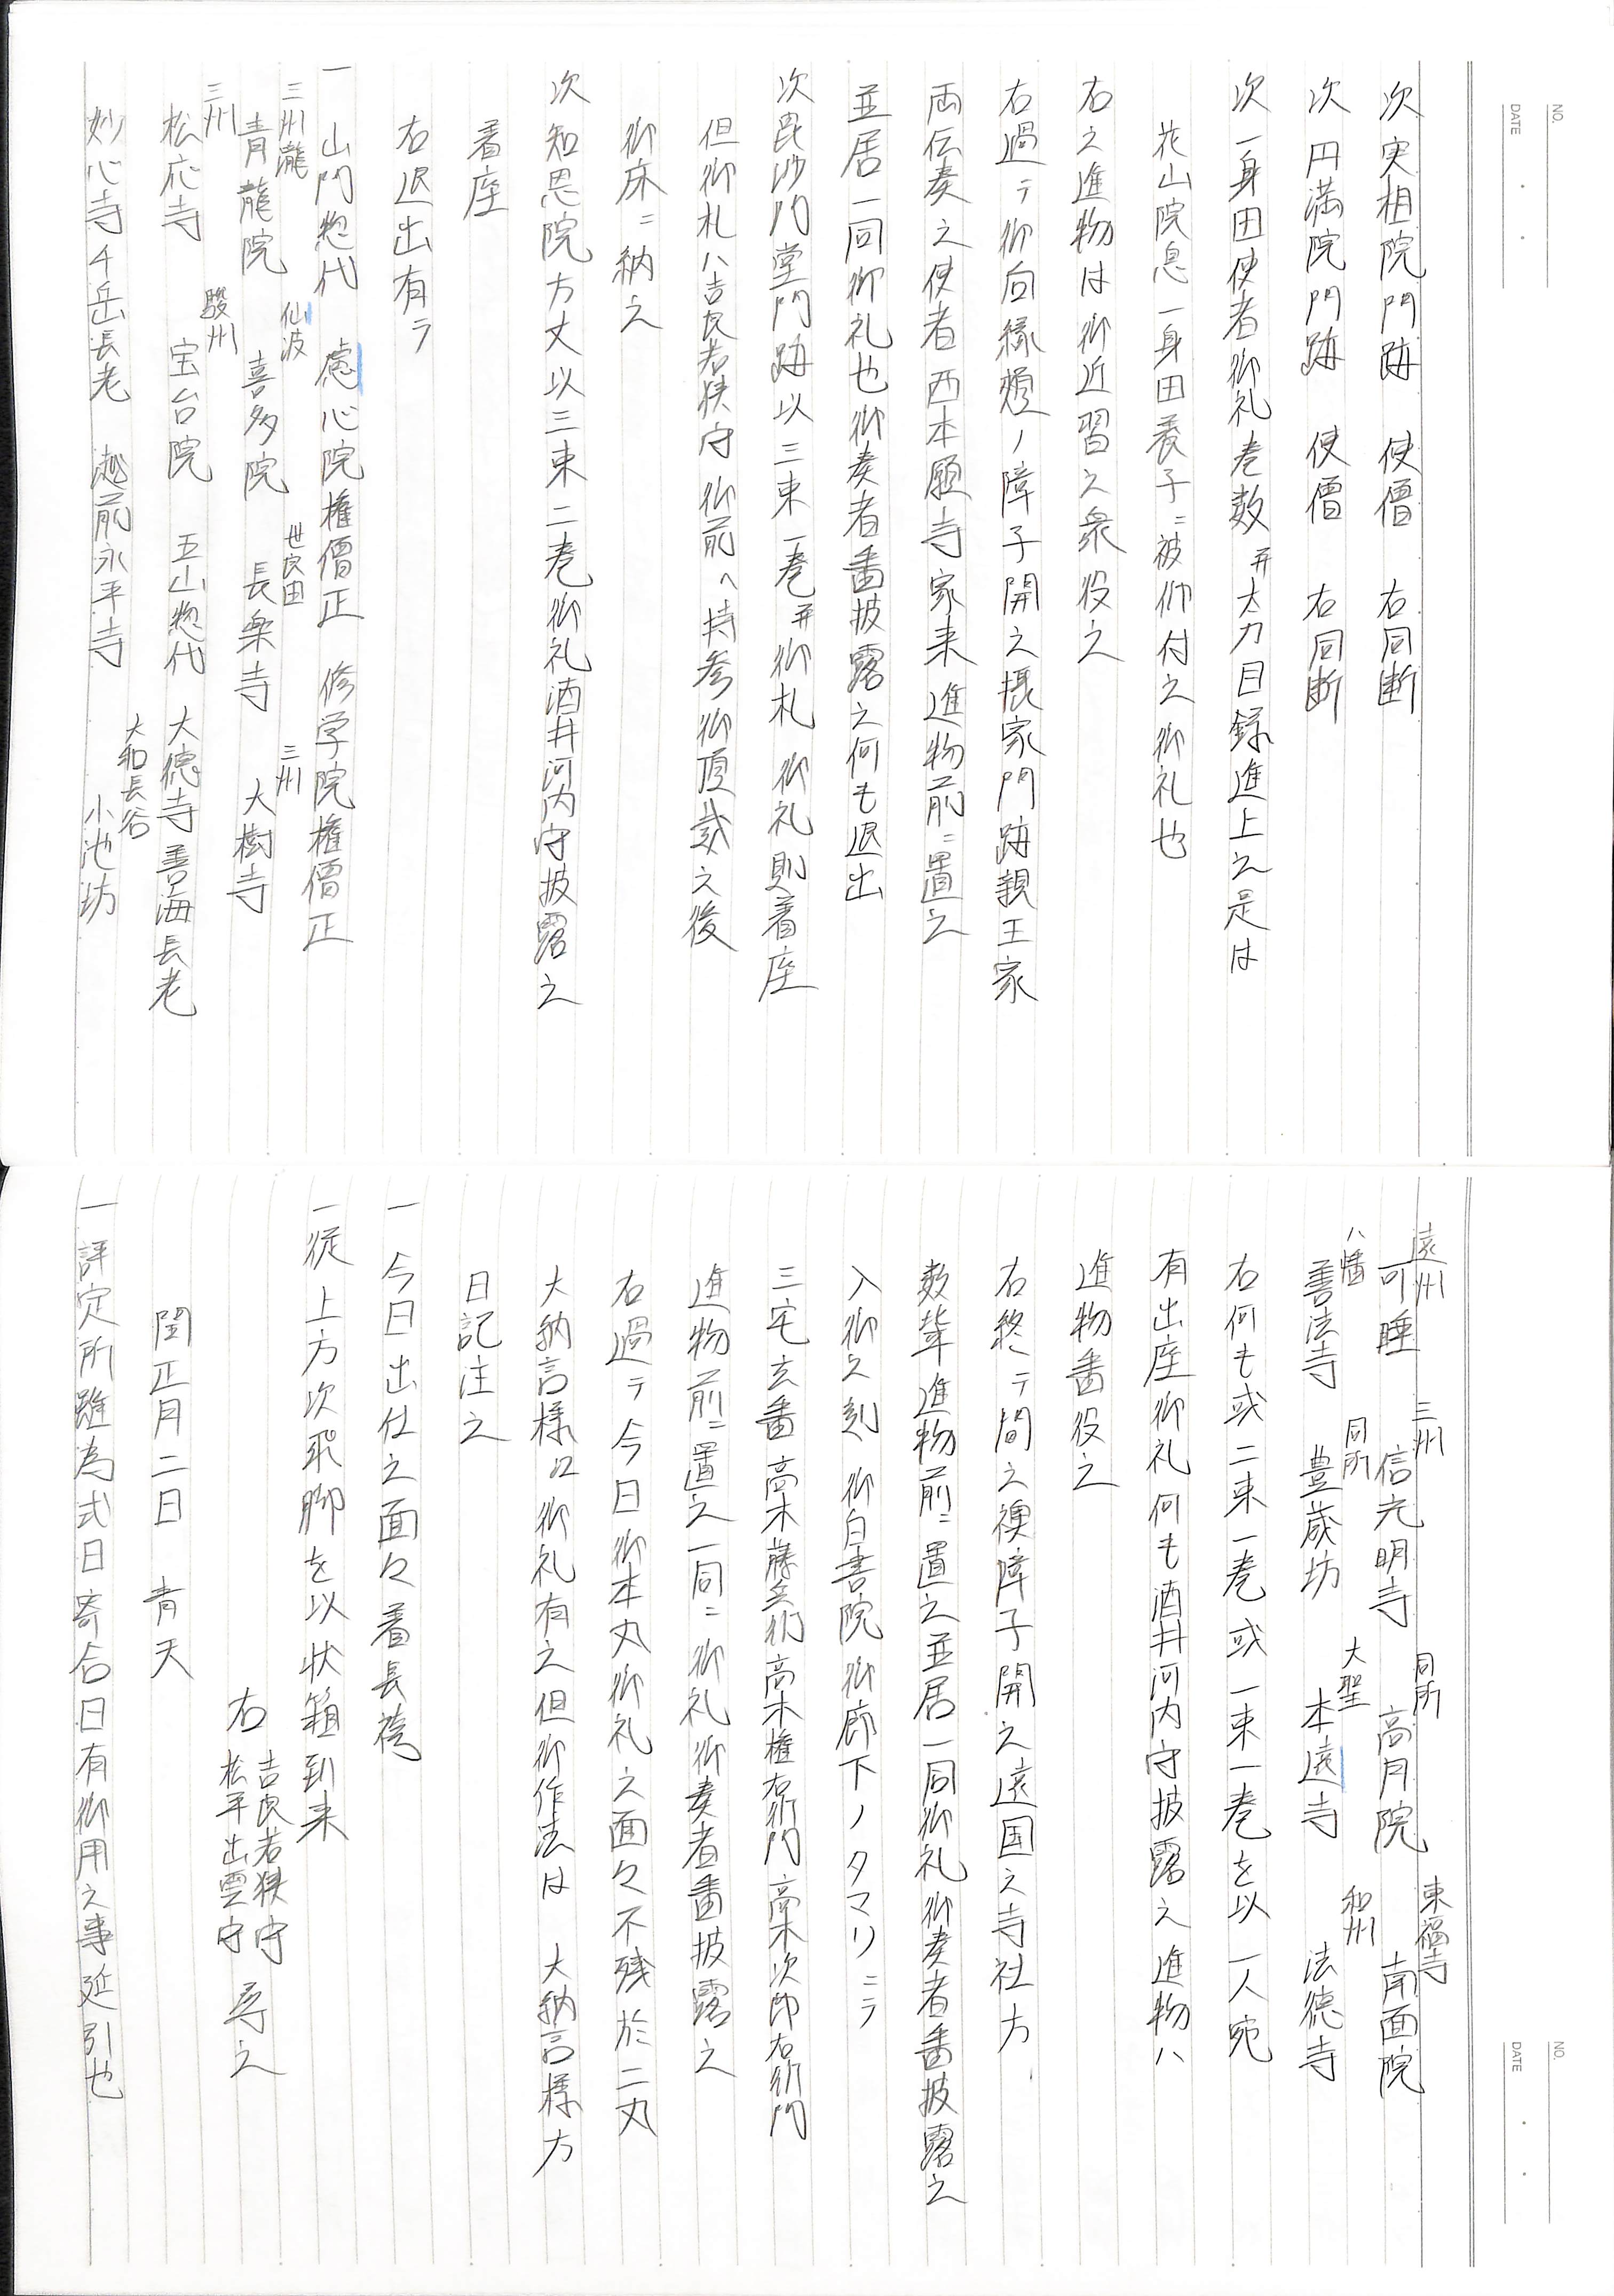 次実相院門跡 使僧 右同断
次円満院門跡 使僧 右同断
次一身田使者御礼巻数并太刀目録進上之是は
花山院息一身田養子ニ被仰付之御礼也
右之進物は御近習之衆役之
右過テ御向縁頬ノ障子開之摂家門跡親王家
両伝奏之使者西本願寺家来進物前ニ置之
並居一同御礼也御奏者番披露之何も退出
次毘沙門堂門跡以三束一巻并御札御礼則着座
但御札ハ吉良若狭守御前へ持参御頂戴之後
御床ニ納之
次知恩院方丈以三束二巻御礼酒井河内守披露之
着座
右退出有テ
一山門惣代 慮心院権僧正 修学院権僧正
三州瀧 仙波 世良田 三州
青龍院 喜多院 長楽寺 大樹寺
三州 駿州
松応寺 宝台院 五山惣代 大徳寺善海長老
大和長谷
妙心寺千岳長老 越前永平寺 小池坊
遠州 三州 同所 東福寺
可睡 信光明寺 高月院 南面院
八幡 同所 大聖 和州
善法寺 豊蔵坊 本遠寺 法徳寺
右何も或二束一巻或一束一巻を以一人宛
有出座御礼何も酒井河内守披露之進物ハ
進物番役之
右終テ間之襖障子開之遠国之寺社方
数輩進物前ニ置之並居一同御礼御奏者番披露之
入御之刻御白書院御廊下ノタマリニテ
三宅玄番高木藤兵衛高木権右衛門高木次郎右衛門
進物前ニ置之一同ニ御礼御奏者番披露之
右過テ今日御本丸御礼之面々不残於二丸
大納言様江御礼有之但御作法は 大納言様方
日記注之
一今日出仕之面々着長袴
一従上方次飛脚を以状箱到来
右 吉良若狭守 松平出雲守 尋之
閏正月二日 青天
一評定所雖為式日寄合日有御用之事延引也